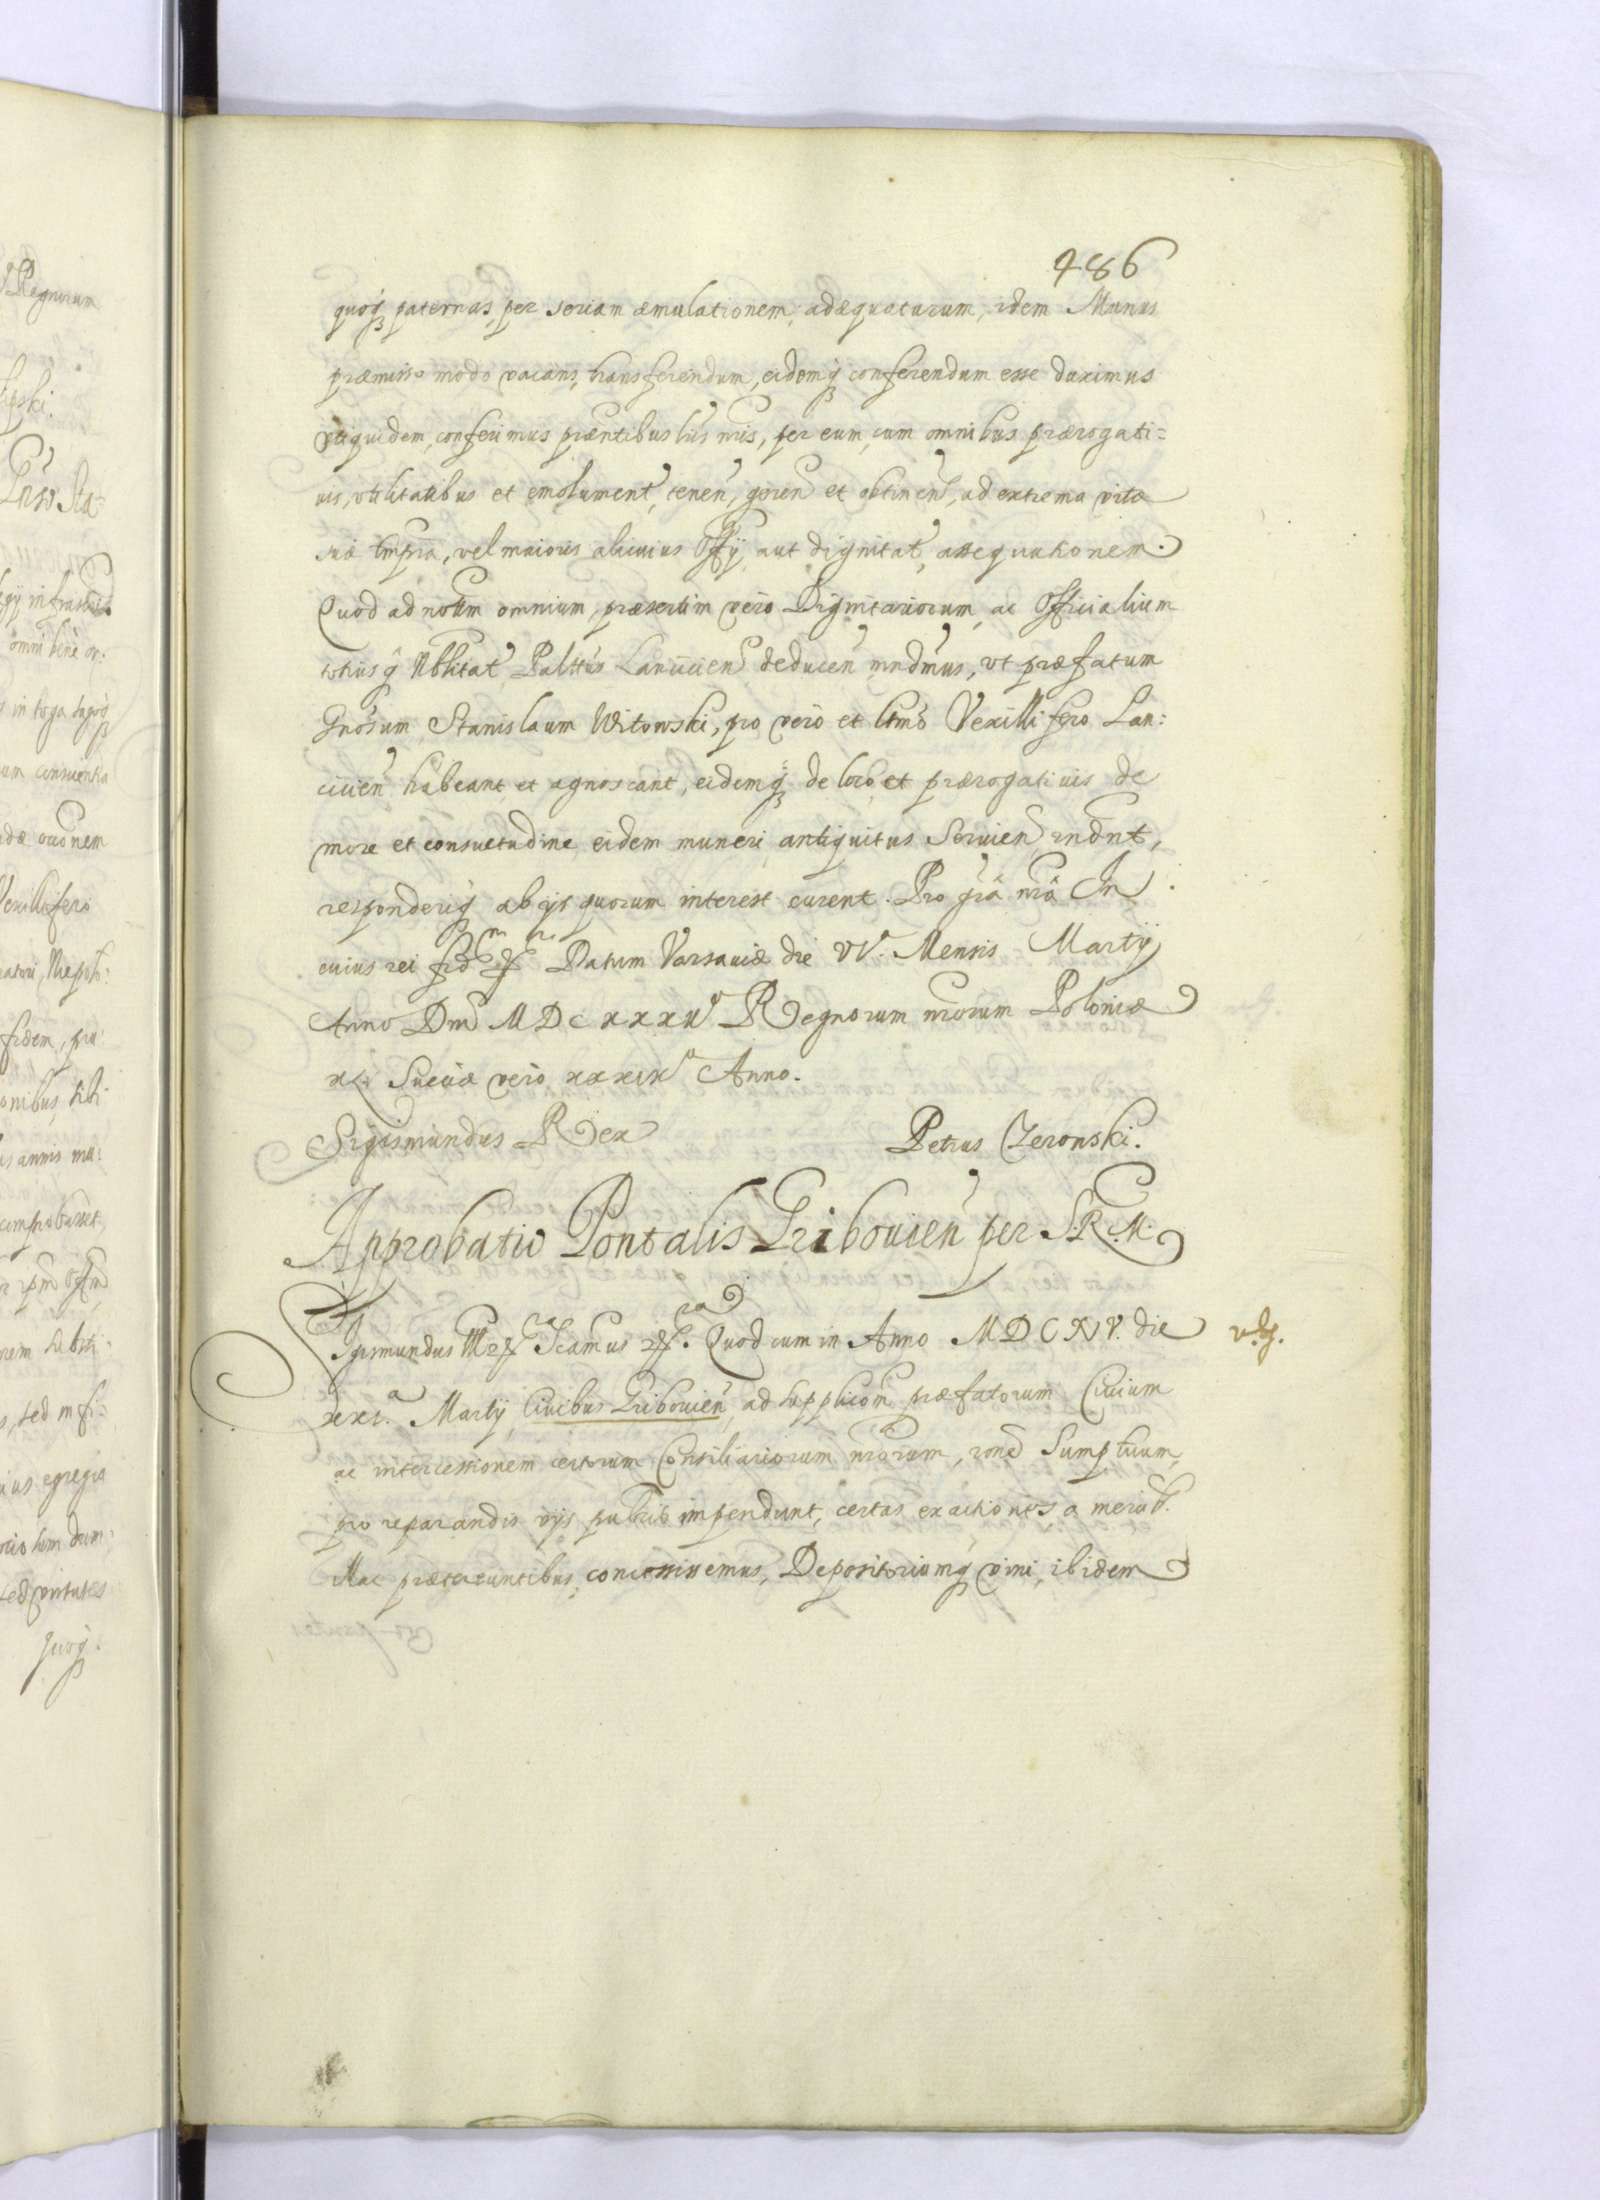 486
quoq₃ paternas, per seriam æmulationem, adæquaturum, idem Munus
præmisso modo vacans, transferendum, eidemq₃ conferendum esse duximus
conferimus præntibus lris nris, per eum, cum omnibus prærogati=
uis, vtilitatibus et emolument, tenen, geren et obtinen, ad extrema vitæ
suæ tmpra, vel maioris alicuius Offij aut dignitat, assequutionem.
Quod ad nottm omnium, præsertim vero Dignitariorum, ac Officialium
totiusq Nblitat Palttus Lanicien deducen mndmus, vt præfatum
Gnosum Stanislaum Witowski, pro vero et ltmo Vexillifero Lan:
cicien habeant, et agnoscant, eidemq₃ de loco, et prærogatiuis de
more et consuetudine eidem muneri antiquitus Seruien rndnt,
responderiq ab ijs quorum interest curent. Pro gra nra In
cuius rei fid Datum Varsauiæ die Mensis Martij
Anno Dni Regnorum nrorum Poloniæ
Sueciæ vero Anno.
Sigismundus Rex Petrus Czeronski.
Approbatio Pontalis Gribouien per S. R. M.
Sigismundus Quod cum in Anno MDCXIV. die
xxi.a Martij Ciuibus Gribouien, ad supplicom præfatorum Ciuium
ac intercessionem certorum Consiliariorum nrorum, rone Sumptuum,
pro reparandis vijs impendunt, certas exactiones a
illac prætereuntibus, concessissemus, Depositoriumq vini, ibidem